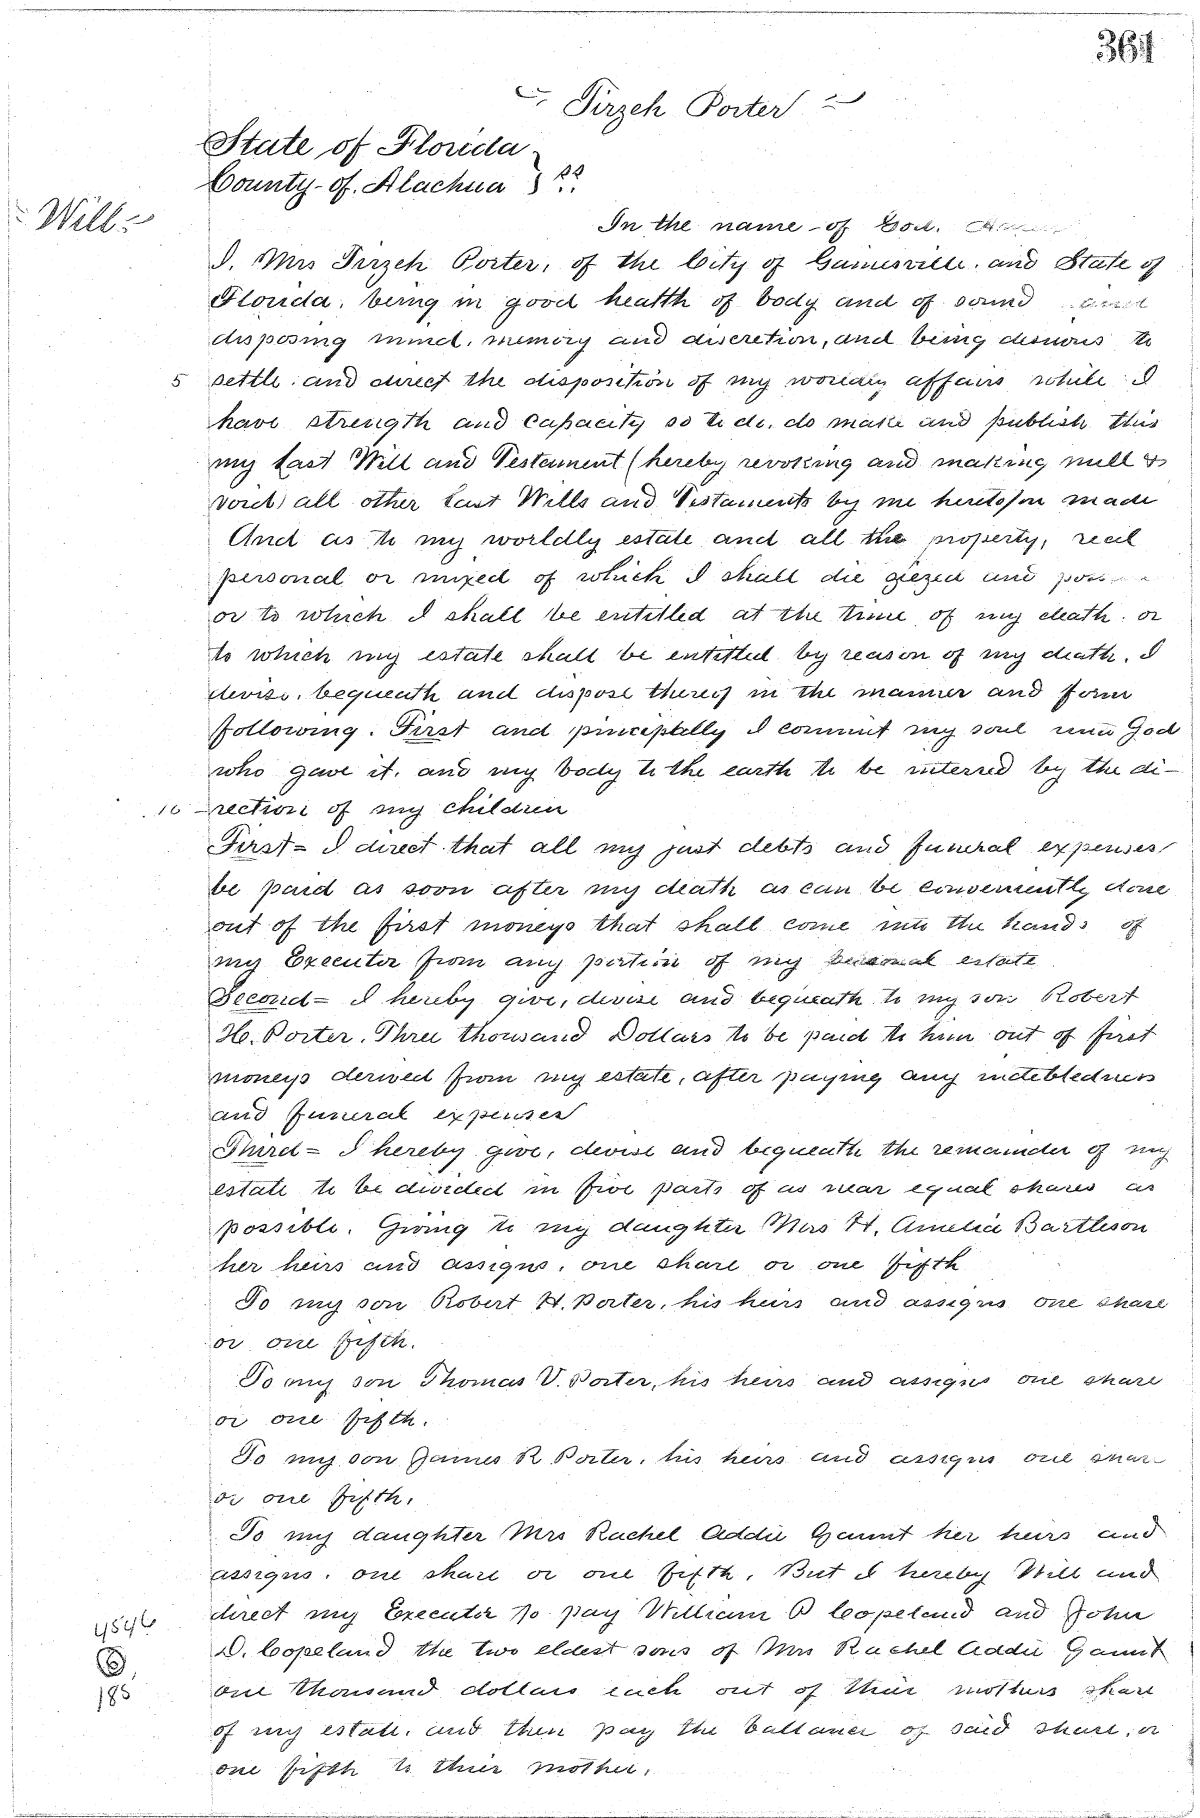 361
Tirzeh Porter
State of Florida
County of Alachua } ss.
Will
In the name of God. Amen
I. Mrs Tirzeh Porter, of the City of Gainesville. and State of
Florida. being in good health of body and of sound and
disposing mind. memory and discretion, and being desirous to
5 settle and direct the disposition of my worldly affairs while I
have strength and capacity so to do. do make and publish this
my last Will and Testament (hereby revoking and making null &
void) all other Last Wills and Testaments by me heretofor made
And as to my worldly estate and all the property, real
personal or mixed of which I shall die siezed and
or to which I shall be entitled at the time of my death. or
to which my estate shall be entitled by reason of my death. I
devise. bequeath and dispose thereof in the manner and form
following. First and principally I commit my soul unto God
who gave it. and my body to the earth to be interred by the di-
10 -rection of my children
First = I direct that all my just debts and funeral expenses
be paid as soon after my death as can be conveniently done
out of the first moneys that shall come into the hands of
my Executor from any portion of my personal estate
Second = I hereby give, devise and bequeath to my son Robert
H. Porter. Three thousand Dollars to be paid to him out of first
moneys derived from my estate, after paying any indebtedness
and funeral expenses
Third = I hereby give, devise and bequeath the remainder of my
estate to be divided in five parts of as near equal shares as
possible. Giving to my daughter Mrs H. Amelia Bartleson
her heirs and assigns. one share or one fifth
To my son Robert H. Porter, his heirs and assigns one share
or one fifth.
To my son Thomas V. Porter, his heirs and assigns one share
or one fifth.
To my son James R Porter. his heirs and assigns one share
or one fifth.
To my daughter Mrs Rachel Addie Gaunt her heirs and
assigns. one share or one fifth. But I hereby Will and
direct my Executor to pay William P Copeland and John
D. Copeland the two eldest sons of Mrs Rachel Addie Gaunt
one thousand dollars each out of thier mothers share
of my estate. and then pay the ballance of said share. or
one fifth to thier mother.
4546
B
185